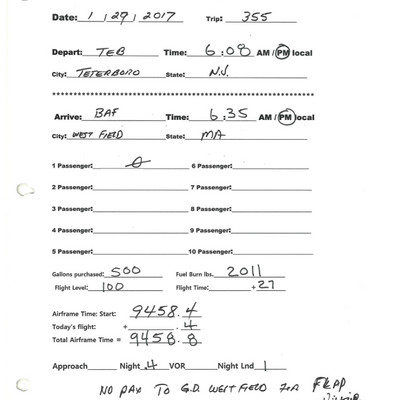 Date: 1 / 29 / 2017 Trip: 355
Depart: TEB Time: 6:08 AM / PM local
City: TETERBORO State: N.J.
Arrive: BAF Time: 6:35 AM / PM local
City: WEST FIELD State: MA
1 Passenger: 0 6 Passenger:
2 Passenger: 7 Passenger:
3 Passenger: 8 Passenger:
4 Passenger: 9 Passenger:
5 Passenger: 10 Passenger:
Gallons purchased: 500 Fuel Burn lbs. 2011
Flight Level: 100 Flight Time: +27
Airframe Time: Start: 9458.4
Today's flight: + .4
Total Airframe Time = 9458.8
Approach Night .4 VOR Night Lnd 1
NO PAX TO G.D. WEST FIELD FOR FLAP